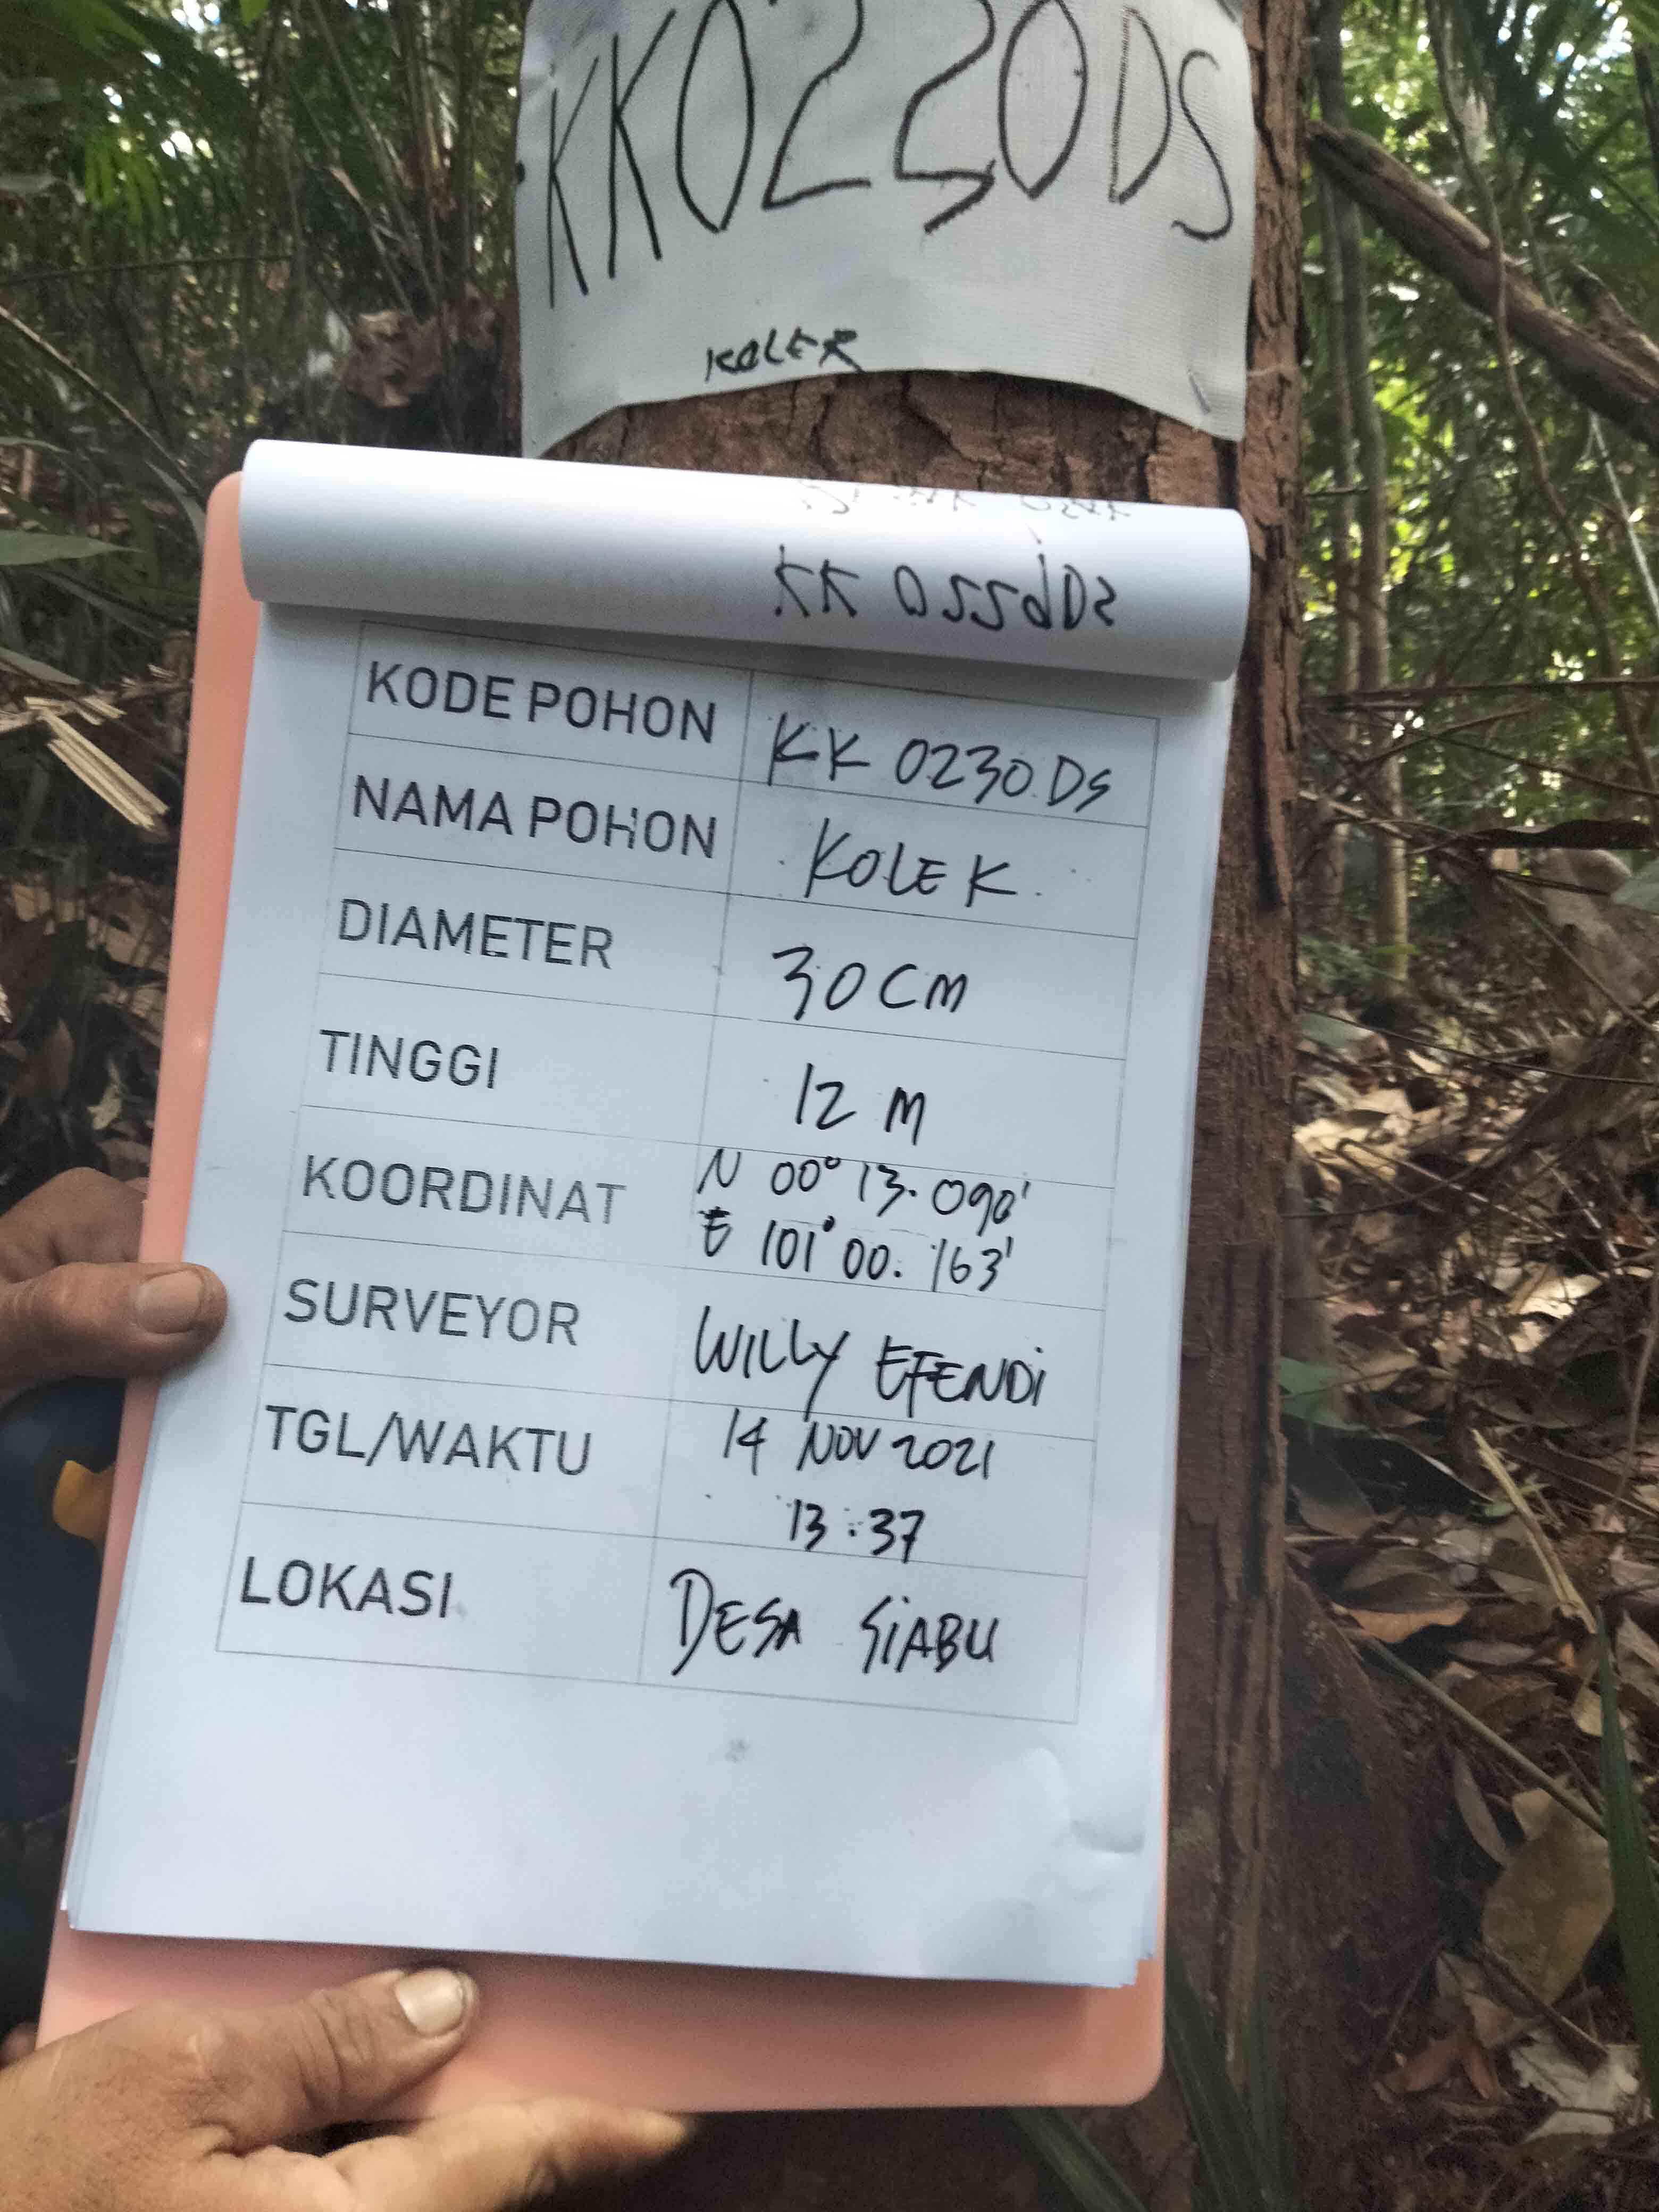 KK0230DS
KOLEK
KODE POHON KK 0230 DS
NAMA POHON KOLEK
DIAMETER 30 CM
TINGGI 12 M
KOORDINAT N 00° 13. 090'
E 101° 00. 163'
SURVEYOR WILLY EFENDI
TGL/WAKTU 14 NOV 2021
13:37
LOKASI DESA SIABU